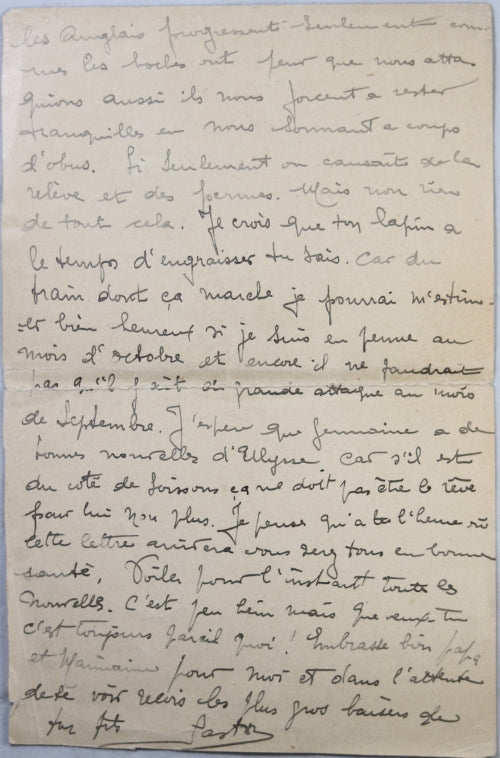 les Anglais progressent seulement com-
mes les boches ont peur que nous atta-
quions aussi ils nous forcent à rester
tranquilles en nous sonnant a coups
d'obus. Si seulement on causait de la
relève et des permes. Mais non rien
de tout cela. Je crois que ton lapin a
le temps d'engraisser tu sais. Car du
train dont ça marche je pourrai m'estim-
er bien heureux si je suis en perme au
mois d'octobre et encore il ne faudrait
pas qu'il y ait de grande attaque au mois
de Septembre. J'espere que Germaine a de
bonnes nouvelles d'Ulysse car s'il est
du coté de Soissons ça ne doit pas être le rêve
pour lui non plus. Je pense qu'a l'heure où
cette lettre arrivera vous serez tous en bonne
santé. Voilà pour l'instant toutes les
nouvelles. C'est peu bien mais que veux-tu
c'est toujours pareil quoi! Embrasse bien papa
et Mamaine pour moi et dans l'attente
de te voir recois les plus gros baisers de
ton fils